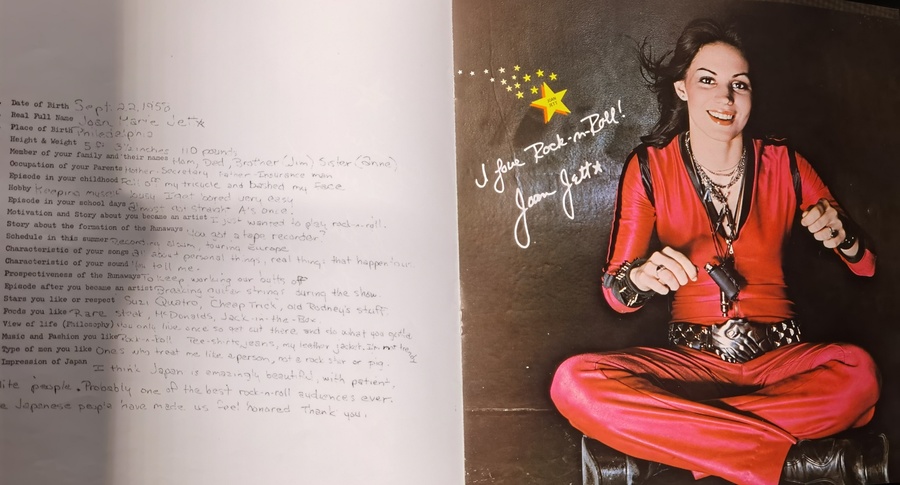 Date of Birth Sept 22, 1958
Real Full Name Joan Marie Jett
Place of Birth Philadelphia
Height & Weight 5 ft 3½ inches 110 pounds
Member of your family and their names Mom, Dad, Brother (Jim) Sister (Anne)
Occupation of your Parents Mother: Secretary Father Insurance man
Episode in your childhood fell off my tricycle and bashed my face
Hobby Keeping myself busy I get bored very easy
Episode in your school days almost all straight A's once.
Motivation and Story about you became an artist I just wanted to play rock-n-roll.
Story about the formation of the Runaways You got a tape recorder?
Schedule in this summer Recording album, touring Europe
Characteristic of your songs all about personal things, real things that happen
Characteristic of your sound You tell me.
Prospectiveness of the Runaways To keep working our butts off
Episode after you became an artist Breaking guitar strings during the show.
Stars you like or respect Suzi Quatro, Cheap Trick, old Rodney's stuff
Foods you like Rare steak, McDonalds, Jack-in-the-Box
View of life (Philosophy) You only live once so get out there and do what you
Music and Fashion you like Rock-n-roll Tee-shirts, jeans, my leather jacket.
Type of men you like Ones who treat me like a person, not a rock star or
Impression of Japan
I think Japan is amazingly beautiful, with patient,
people. Probably one of the best rock-n-roll audiences ever.
Japanese people have made us feel honored Thank you.
JOAN JETT
I love Rock-n-Roll!
Joan Jett